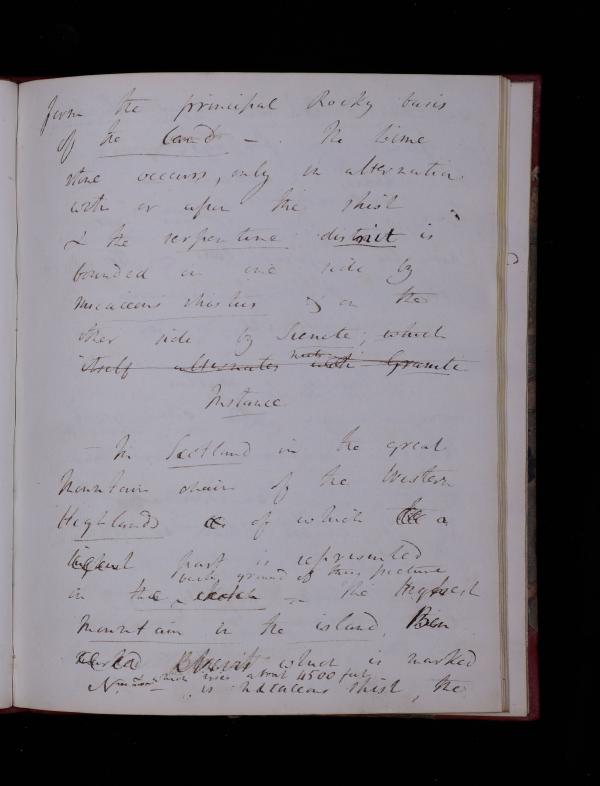 form the principal Rocky basis
of the land - . The lime
stone occurs, only in alternation
with or upon the shist
& the serpentine district is
bounded on one side by
micaceous shistus & on the
other side by Sienite, which
itself alternates with Granite
Instance
- In Scotland in the great
Mountain chain of the Western
Highlands of which a
part is represented
back ground of this picture
in the sketch - the Highest
Mountain in the island, Ben
Nevis which is marked
which rises about 4500 feet
N. is micaceous shist, the